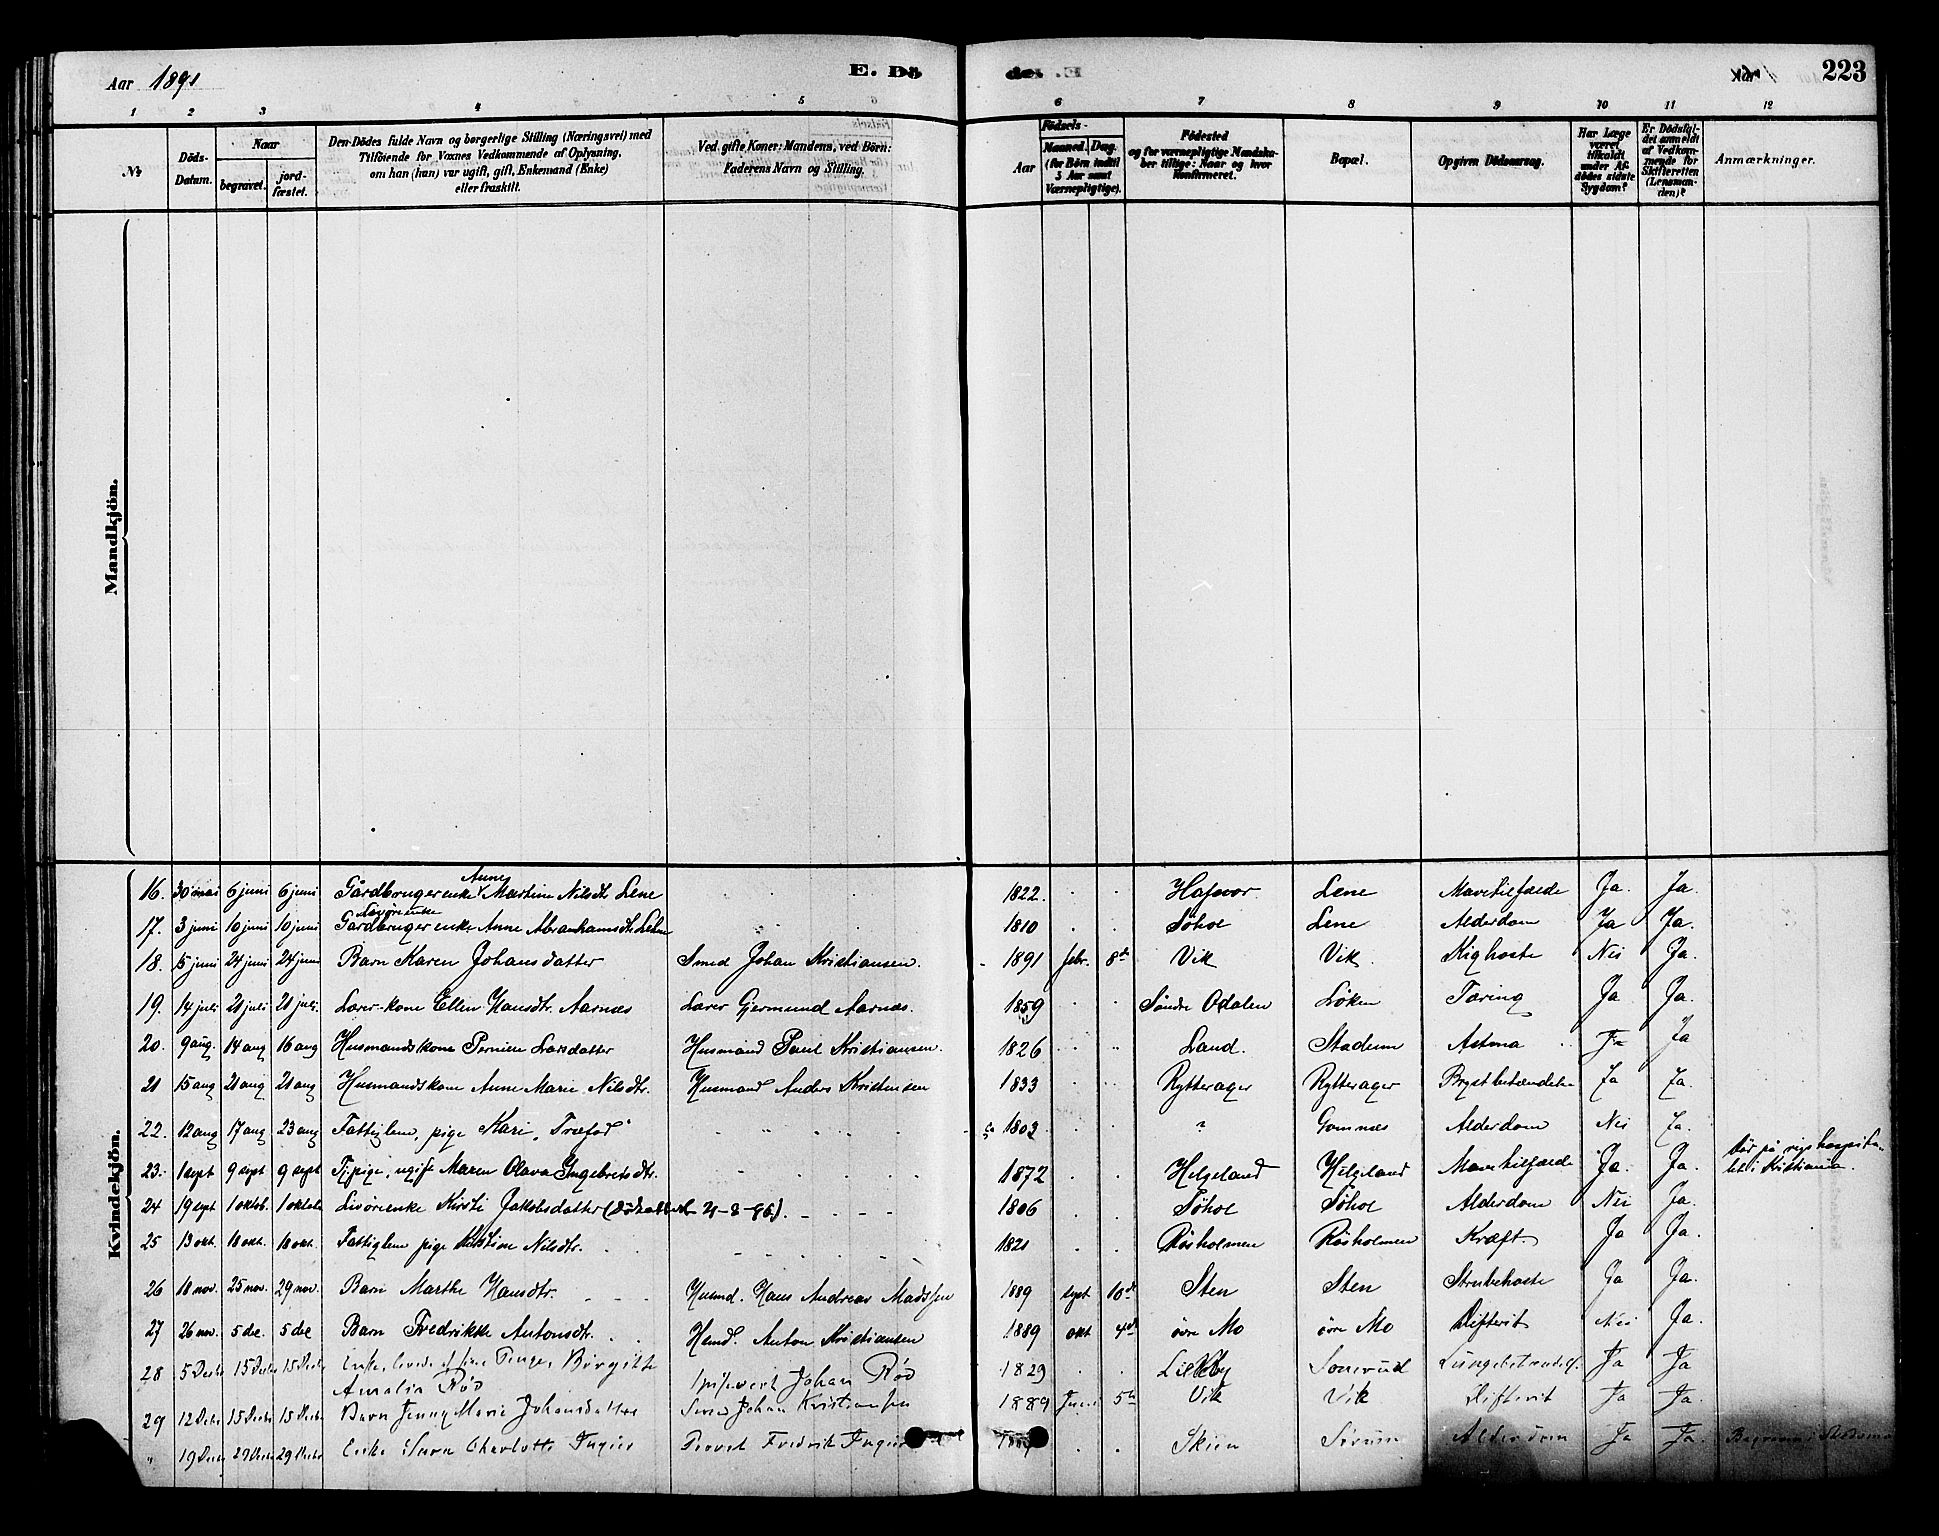 Aar 1891
E. Dö
de.
223
1 2 3 4 5 6 7 8 9 10 11 12
No
Döds-Datum.
Naar
begravet.
jord-fæstet.
Den Dödes fulde Navn og borgerlige Stilling (Næringsvei) med
Tilföiende for Voxnes Vedkommende af Oplysning,
om han (hun) var ugift, gift, Enkemand (Enke)
eller fraskilt.
Ved gifte Koner: Mandens, ved Börn:
Faderens Navn og Stilling.
Födsels-
Aar
Maaned. Dag.
(for Börn indtil
5 Aar samt
Værnepligtige).
Födested
og for værnepligtige Mandska-
ber tillige: Naar og hvor
konfirmeret.
Bopæl.
Opgiven Dödsaarsag.
Har Læge
været
tilkaldt
under Af-
dödes sidste
Sygdom?
Er Dödsfal-
det anmeldt
af Vedkom-
mende for
Skifteretten
(Lensman-
den)?
Anmærkninger.
Mandkjön.
Kvindekjön.
16. 30 mai 6 juni 6 juni Gårdbrugerenke Anne Martine Nilsdt. Lene 1822 Hafnor Lene Mavetilfælde Ja. Ja.
17. 3 juni 10 juni 10 juni Livörienke
Gårdbrugerenke Anne Abrahamsdt. 1810 Söhol Lene Alderdom Ja Ja.
18. 15 juni 24 juni 24 juni Barn Karen Johansdatter Smed Johan Kristiansen. 1891 febr. 8de Vik Vik. Kighoste Nei Ja.
19. 14 juli 21 juli 21 juli. Lærer-kone Ellen Hansdt. Aarnæs Lærer Gjermund Aarnæs. 1859 Söndre Odalen Löken Tæring Ja Ja.
20. 9 aug. 14 aug 16 aug Husmandskone Pernille Larsdatter Husmand Paul Kristiansen. 1826 Land. Stadum Astma Ja Ja
21 15 aug 21 aug 21 aug Husmandskone Anne Marie Nilsdtr. Husmand Anders Kristensen 1833 Rytterager Rytterager Brystbetændelse Ja Ja.
22. 12 aug 17 aug 23 aug Fattiglem, pige Kari „Træfod“ 1803 ? Gomnæs Alderdom Nei Ja.
23. 1 sept 9 sept 9 sept Tj.pige, ugift Maren Olava Ingebretsdtr. 1872 Helgeland Helgeland Mavetilfælde Ja. Ja. Dör på rigshospita-
let i Kristiania.
24 19 sept 1 oktob. 1 oktob Livörienke Kirsti Jakobsdatter 1806 Söhol Söhol Alderdom Nei Ja.
25 13 okt. 18 okt. 18 okt. Fattiglem pige Kristine Nilsdtr. 1821 Rösholmen Rösholmen Kræft. Ja Ja.
26 18 nov. 25 nov. 29 nov. Barn Marthe Hansdtr. Husmd. Hans Andreas Madssen 1889 sept 10de Sten Sten Strubehoste Ja Ja.
27 26 nov. 5 dec. 5 dec Barn Fredrikke Antonsdtr. Husmd. Anton Kristiansen 1889 okt 4de övre Mo övre Mo Difterit Nei Ja.
28 5 Decbr 15 Decbr 15 Decbr Enke, levede af sine Penger Birgitte
Amalia Röd Johan Röd 1829 Lilleby Sonerud Lungebetændelse Ja Ja
29 12 Decbr 15 Decbr 15 Decbr Barn Jenny Marie Johansdatter Smed Johan Kristiansen 1889 Juni 5te Vik Vik Difterit Ja Ja.
" 19 Decbr 29 Decbr 29 Decbr Enke Charlotte Ingier Provst Fredrik Ingier Skien Sörum Alderdom Ja Ja.